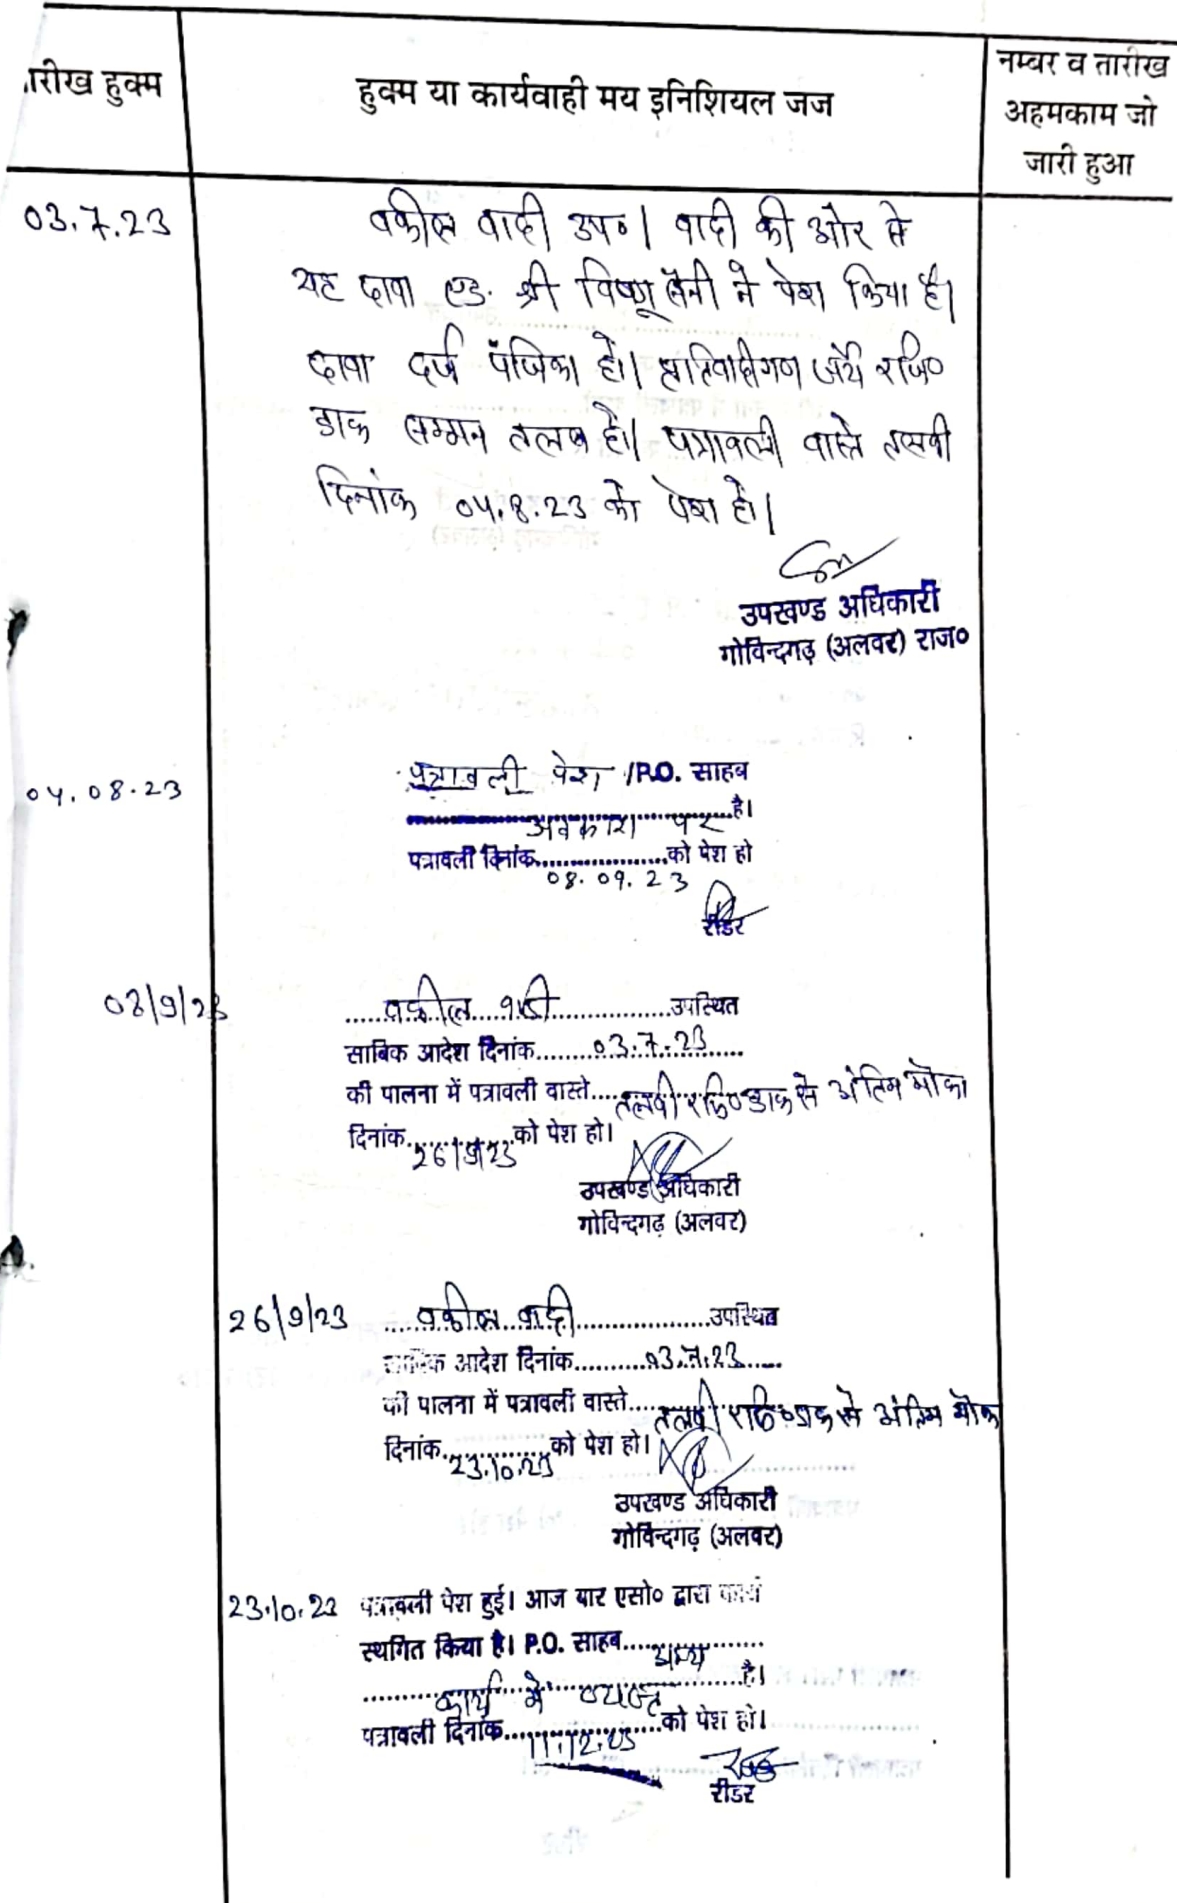 तारीख हुक्म
हुक्म या कार्यवाही मय इनिशियल जज
नम्बर व तारीख
अहमकाम जो
जारी हुआ
03.7.23
वकील वादी उप०। वादी की ओर से
यह दावा एड. श्री विष्णू सैनी ने पेश किया है।
दावा दर्ज पंजिका हो। प्रतिवादीगण जर्ये रजि०
डाक सम्मन तलब हो। पत्रावली वास्ते तलवी
दिनांक 04.8.23 को पेश हो।
उपखण्ड अधिकारी
गोविन्दगढ़ (अलवर) राज०
04.08.23
पत्रावली पेश /P.O. साहब
अवकाश पर है।
पत्रावली दिनांक 08.09.23 को पेश हो
रीडर
08/9/23
वकील वादी उपस्थित
साबिक आदेश दिनांक 03.7.23
की पालना में पत्रावली वास्ते तलवी रजि० डाक से अंतिम मौका
दिनांक 26/9/23 को पेश हो।
उपखण्ड अधिकारी
गोविन्दगढ़ (अलवर)
26/9/23
वकील वादी उपस्थित
साबिक आदेश दिनांक 03.7.23
की पालना में पत्रावली वास्ते तलवी रजि० डाक से अंतिम मौका
दिनांक 23.10.23 को पेश हो।
उपखण्ड अधिकारी
गोविन्दगढ़ (अलवर)
23.10.23
पत्रावली पेश हुई। आज बार एसो० द्वारा कार्य
स्थगित किया है। P.O. साहब अन्य
कार्य में व्यस्त है।
पत्रावली दिनांक 11.12.23 को पेश हो।
रीडर